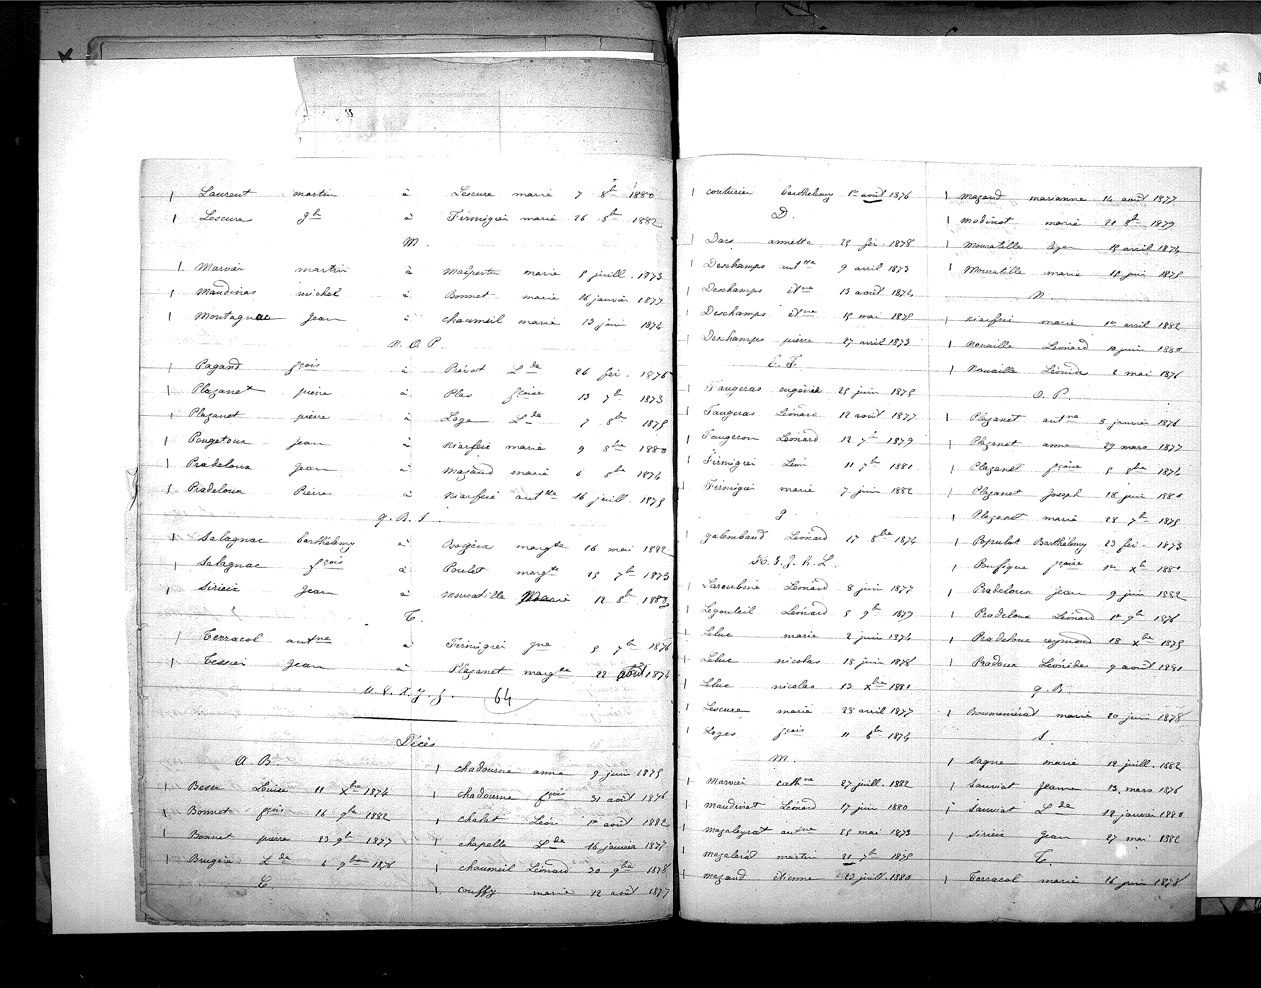 Laurent martin à Lescure marie 7 8bre 1880
Lescure gte à Firmigier marie 26 8bre 1882
M.
Marvier martin à Malperte marie 8 juill. 1873
Maudinas michel à Bonnet marie 16 janvier 1877
Montagnac Jean à Chaumeil marie 13 juin 1874
N. O. P.
Pagand fçois à Prévot Lde 26 fév. 1876
Plazanet pierre à Plas fçoise 13 7bre 1873
Plazanet pierre à Loge Lde 7 8bre 1875
Pougetoux Jean à Niarfeix marie 9 8bre 1880
Pradeloux Jean à Mazaud marie 6 8bre 1874
Pradeloux Pierre à Niarfeix anttte 16 juill. 1875
Q. R. S.
Salagnac barthélemy à margte 16 mai 1882
Salagnac fçois à Poulet margte 25 7bre 1873
Sirieix Jean à mouratille Marie 12 8bre 1880
T.
Terracol antne à Firmigier gne 5 7bre 1876
Tessier Jean à Plazanet margte 22 août 1874
U. V. X. Y. Z. 64
Décès
A B
Besse Louise 11 Xbre 1874
Bonnet fçois 16 9bre 1882
Bonnet pierre 23 9bre 1877
Brugère Lde 4 9bre 1876
C.
chadourne anne 9 juin 1875
chadourne fçois 31 août 1876
chalat Léon 1er août 1882
chapelle Lde 16 janvier 1877
chaumeil Léonard 30 9bre 1878
couffy marie 12 août 1877
couturier barthélemy 1er août 1876
D.
Dars annette 28 fév. 1878
Deschamps anttte 9 avril 1873
Deschamps etne 13 août 1874
Deschamps etne 15 mai 1875
Deschamps pierre 27 avril 1873
E. F.
Faugeras eugénie 25 juin 1875
Faugeras Léonard 12 août 1877
Faugeron Léonard 12 7bre 1879
Firmigier Léon 11 7bre 1881
Firmigier marie 7 juin 1882
g
galembaud Léonard 17 8bre 1874
H. I. J. K. L.
Laroubine Léonard 8 juin 1877
Legouteil Léonard 5 9bre 1879
Leluc marie 2 juin 1874
Leluc nicolas 15 juin 1878
Leluc nicolas 13 Xbre 1881
Lescure marie 28 avril 1877
Loges fçois 11 6bre 1874
M.
Marvier cathne 27 juill. 1882
Maudinat Léonard 17 juin 1880
mazaleyrat antne 25 mai 1873
mazalérat martin 21 7bre 1875
mazaud étienne 23 juill. 1880
mazaud marianne 14 août 1877
modinat marie 21 8bre 1879
mouratille 15 avril 1874
Mouratille marie 18 juin 1875
N.
Niarfeix marie 1er avril 1882
Nouaille Léonard 10 juin 1880
Nouaille Léonide 2 mai 1876
O. P.
Plazanet antne 5 janvier 1876
Plazanet anne 29 mars 1877
Plazanet fçoise 5 8bre 1874
Plazanet Joseph 18 juin 1880
Plazanet marie 28 7bre 1875
Barthélemy 23 fév. 1873
fçoise 1er Xbre 1880
Pradeloux Jean 9 juin 1882
Pradeloux Léonard 1er 9bre 1876
Pradeloux reymond 18 Xbre 1875
Pradoux Léonide 9 août 1881
Q. R.
Roumenièrat marie 20 juin 1878
S
Sagne marie 12 juill. 1882
Sauviat Jeanne 13 mars 1876
Sauviat Lde 12 janvier 1880
Sirieix Jean 27 mai 1882
T.
Terracol marie 16 juin 1878